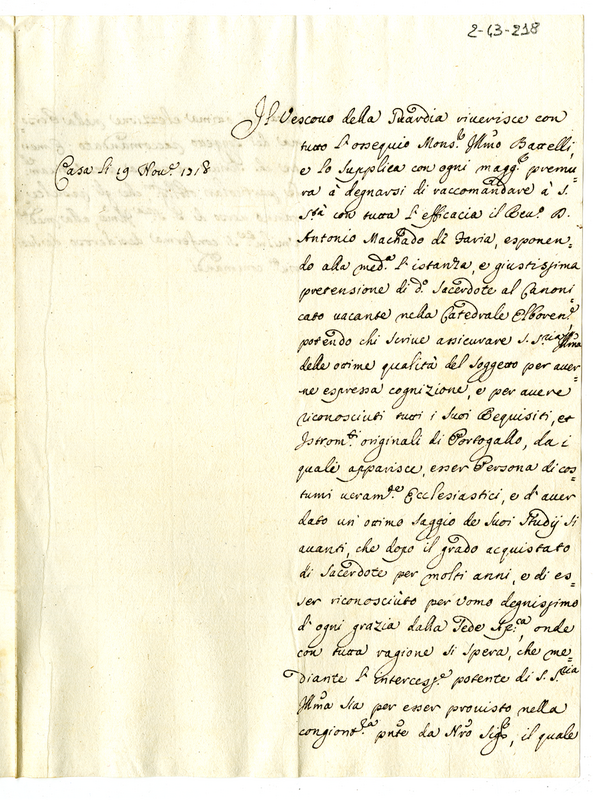 2-43-218
Il Vescovo della Guardia riverisce con
tutto l'ossequio Mons.re Illmo Battelli,
e lo supplica con ogni magg.e premu=
Casa li 19 Nov.e 1718
ra à degnarsi di raccomandare à S.
S.tà con tutta l'efficacia il Beu.o D.
Antonio Machado di Faria, esponen=
do alla med.a l'istanza, e giustissima
pretensione di d.o Sacerdote al Canoni=
cato vacante nella Catedrale Elboren.e
potendo chi scrive assicurare S. S.ria Illma
delle ottime qualità del soggetto per aver=
ne espressa cognizione, e per avere
riconosciuti tutti i suoi Requisiti, et
Istrom.ti originali di Portogallo, da i
quali apparisce, esser Persona di cos=
tumi veram.te Ecclesiastici, e d'aver
dato un ottimo saggio de suoi Studij si
avanti, che dopo il grado acquistato
di Sacerdote per molti anni, e di es=
ser riconosciuto per Uomo degnissimo
d'ogni grazia dalla Sede Ap.ca, onde
con tutta ragione si spera, che me=
diante l'intercess.e potente di S. S.ria
Illma sia per esser provisto nella
congiont.ra pnte da Nro Sig.re, il quale